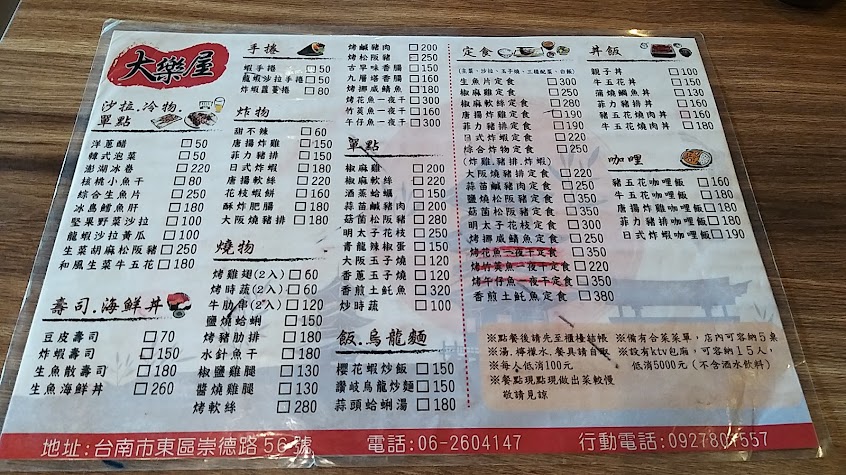 大樂屋
沙拉.冷物.
單點
洋蔥醋 □50
韓式泡菜 □50
澎湖冰卷 □220
核桃小魚干 □80
綜合生魚片 □250
冰島鱈魚肝 □180
堅果野菜沙拉 □100
龍蝦沙拉黃瓜 □100
生菜胡麻松阪豬 □250
和風生菜牛五花 □180
壽司.海鮮丼
豆皮壽司 □70
炸蝦壽司 □150
生魚散壽司 □180
生魚海鮮丼 □260
手捲
蝦手捲 □50
龍蝦沙拉手捲 □50
炸蝦蘆薈捲 □80
炸物
甜不辣 □60
唐揚炸雞 □150
菲力豬排 □150
日式炸蝦 □180
唐揚軟絲 □220
花枝蝦餅 □180
酥炸肥腸 □180
大阪燒豬排 □180
燒物
烤雞翅(2入) □60
烤時蔬(2入) □60
牛肋串(2入) □120
鹽燒蛤蜊 □150
烤豬肋排 □180
水針魚干 □180
椒鹽雞腿 □130
醬燒雞腿 □130
烤軟絲 □280
烤鹹豬肉 □200
烤松阪豬 □250
古早味香腸 □150
九層塔香腸 □160
烤挪威鯖魚 □180
烤花魚一夜干 □300
竹莢魚一夜干 □180
午仔魚一夜干 □300
單點
椒麻雞 □200
椒麻軟絲 □220
酒蒸蛤蠣 □150
蒜苗鹹豬肉 □200
菇菌松阪豬 □280
明太子花枝 □250
青龍辣椒蛋 □150
大阪玉子燒 □120
香蔥玉子燒 □120
香煎土魠魚 □320
炒時蔬 □100
飯.烏龍麵
櫻花蝦炒飯 □150
讚岐烏龍炒麵 □150
蒜頭蛤蜊湯 □180
定食
生魚片定食 □300
椒麻雞定食 □250
椒麻軟絲定食 □280
唐揚炸雞定食 □190
菲力豬排定食 □190
日式炸蝦定食 □220
綜合炸物定食 □250
(炸雞.豬排.炸蝦)
大阪燒豬排定食 □220
蒜苗鹹豬肉定食 □250
鹽燒松阪豬定食 □300
菇菌松阪豬定食 □350
明太子花枝定食 □300
烤挪威鯖魚定食 □250
烤花魚一夜干定食 □350
烤竹莢魚一夜干定食 □220
烤午仔魚一夜干定食 □350
香煎土魠魚定食 □380
丼飯
親子丼 □100
牛五花丼 □150
蒲燒鯛魚丼 □130
菲力豬排丼 □160
豬五花燒肉丼 □160
牛五花燒肉丼 □180
咖哩
豬五花咖哩飯 □160
牛五花咖哩飯 □180
唐揚炸雞咖哩飯 □180
菲力豬排咖哩飯 □180
日式炸蝦咖哩飯 □190
※點餐後請先至櫃檯結帳
※湯.檸檬水.餐具請自取
※每人低消100元
※餐點現點現做出菜較慢
敬請見諒
※備有合菜菜單,店內可容納5桌
※設有ktv包廂,可容納15人,
低消5000元(不含酒水飲料)
地址:台南市東區崇德路56號 電話:06-2604147 行動電話:0927801557